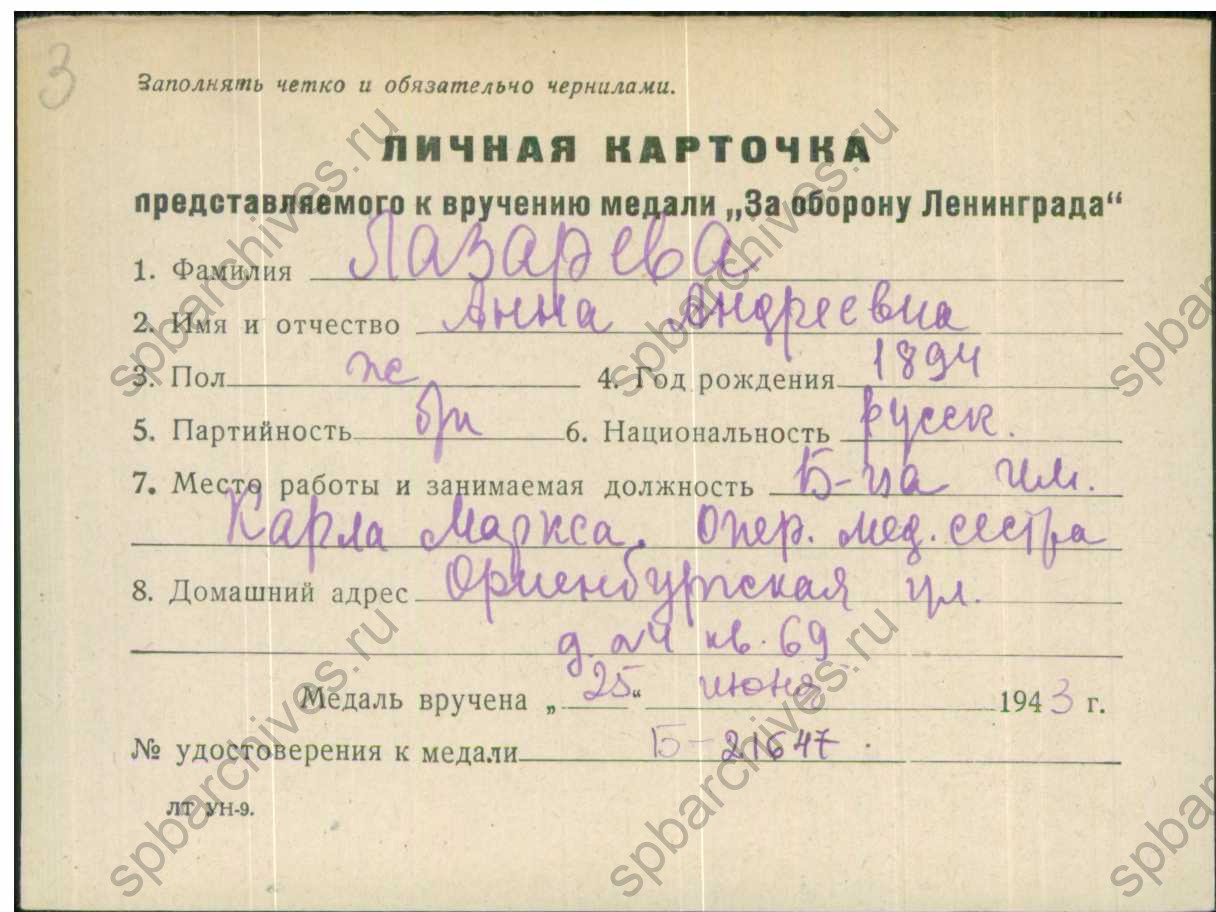 3
Заполнять четко и обязательно чернилами.
ЛИЧНАЯ КАРТОЧКА
представляемого к вручению медали „За оборону Ленинграда“
1. Фамилия Лазарева
2. Имя и отчество Анна Андреевна
3. Пол ж 4. Год рождения 1894
5. Партийность б/п 6. Национальность русск.
7. Место работы и занимаемая должность Б-ца им.
Карла Маркса. Опер. мед. сестра
8. Домашний адрес Ориенбургская ул.
д. 24 кв. 69
Медаль вручена „25“ июня 1943 г.
№ удостоверения к медали Б-21647.
ЛТ УН-9.
spbarchives.ru
spbarchives.ru
spbarchives.ru
spbarchives.ru